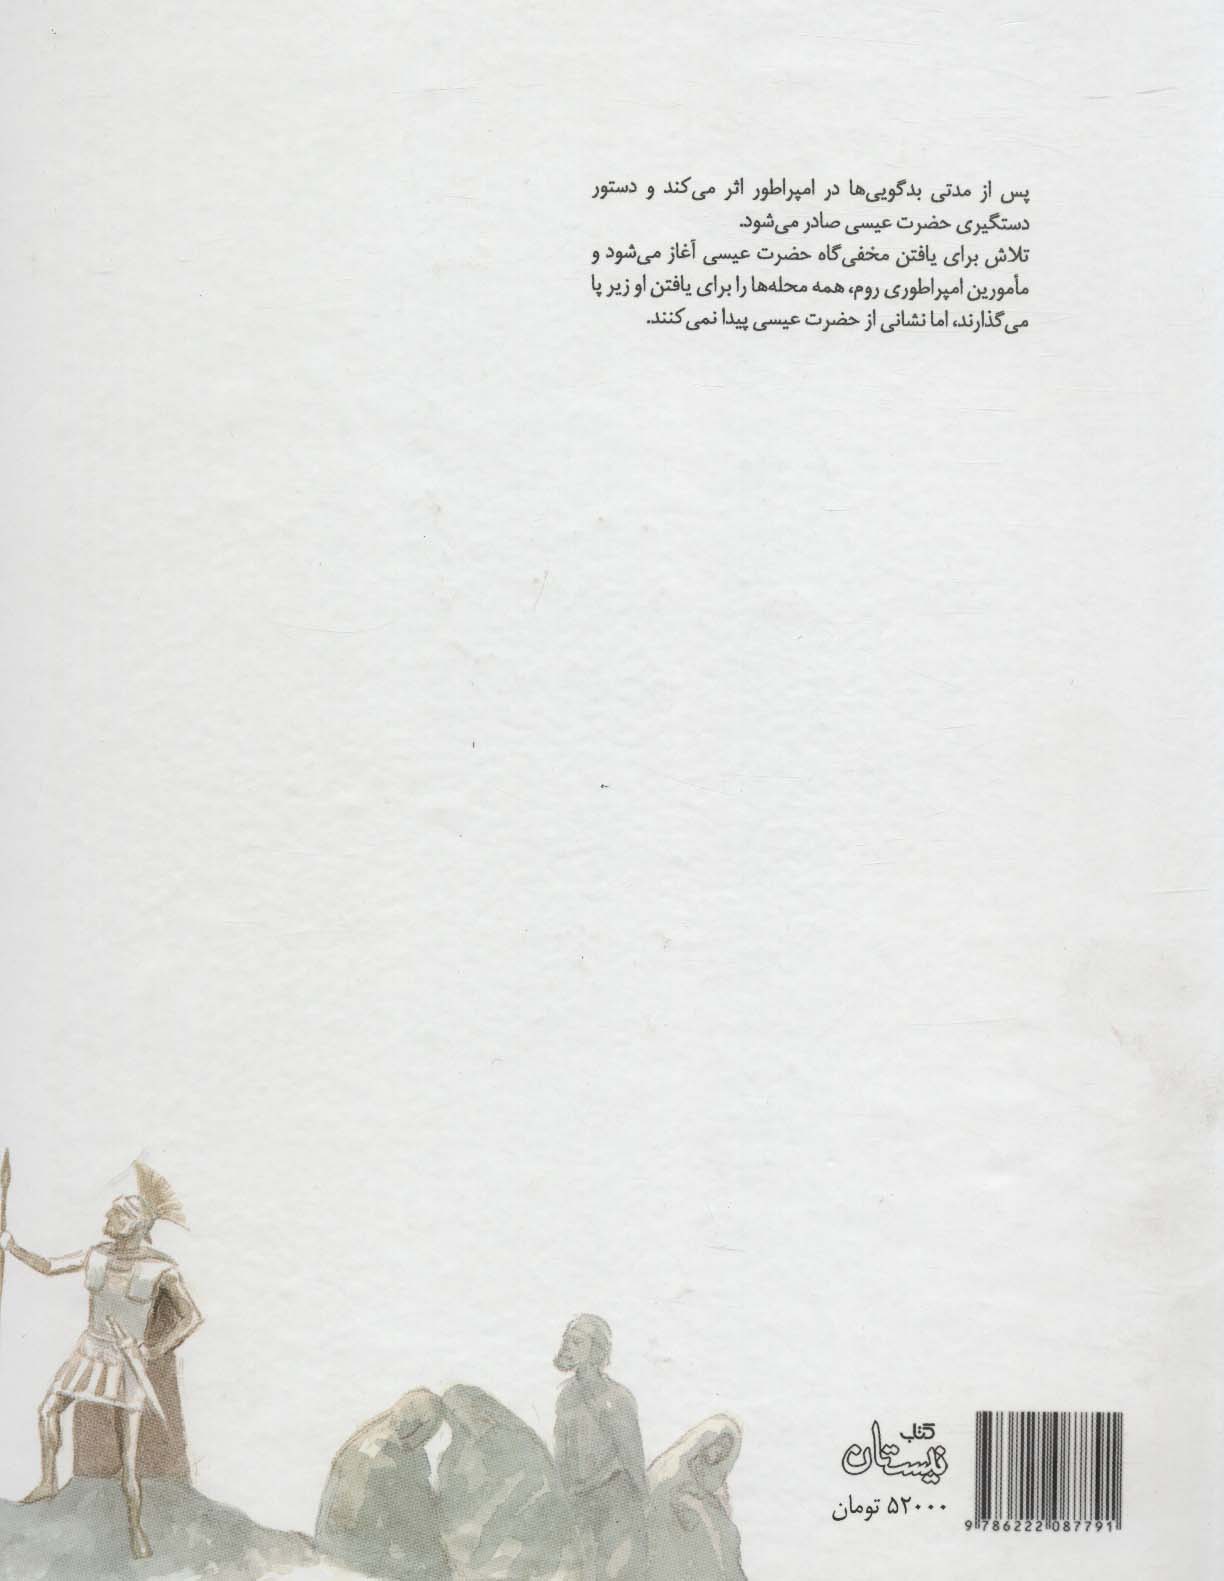 پس از مدتی بدگویی‌ها در امپراطور اثر می‌کند و دستور
دستگیری حضرت عیسی صادر می‌شود.
تلاش برای یافتن مخفی‌گاه حضرت عیسی آغاز می‌شود و
مأمورین امپراطوری روم، همه محله‌ها را برای یافتن او زیر پا
می‌گذارند، اما نشانی از حضرت عیسی پیدا نمی‌کنند.
کتاب
نیستان
۵۲۰۰۰ تومان
9 786222 087791